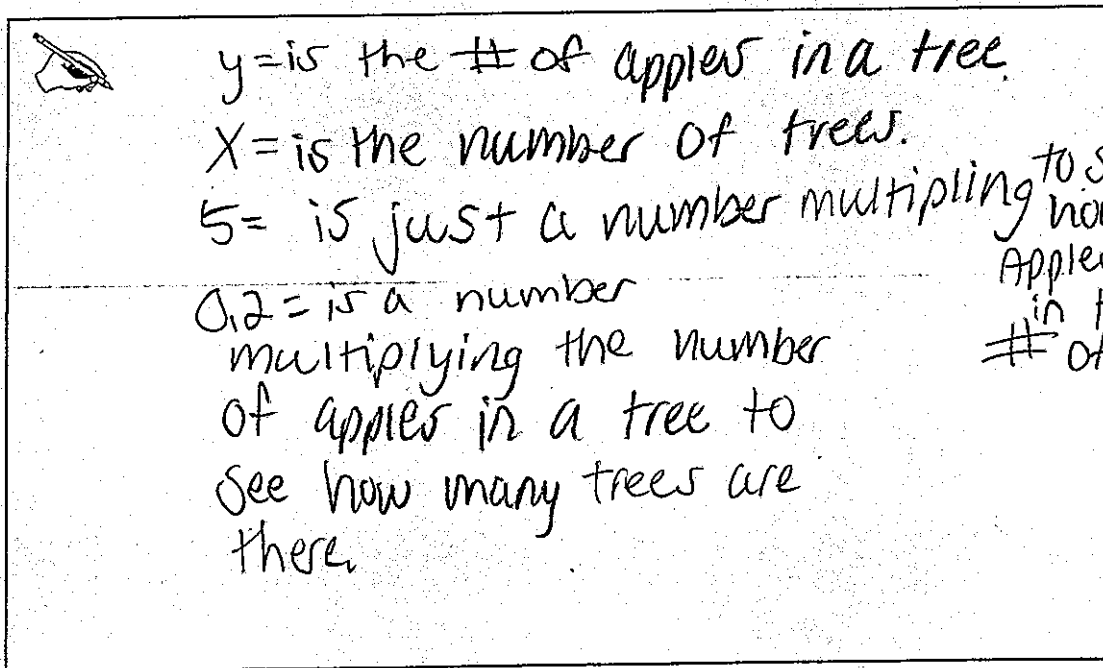 y=is the # of apples in a tree.
X=is the number of trees.
5= is just a number multipling to
0.2= is a number
multiplying the number
of apples in a tree to
see how many trees are
there.
Apples
in
# of